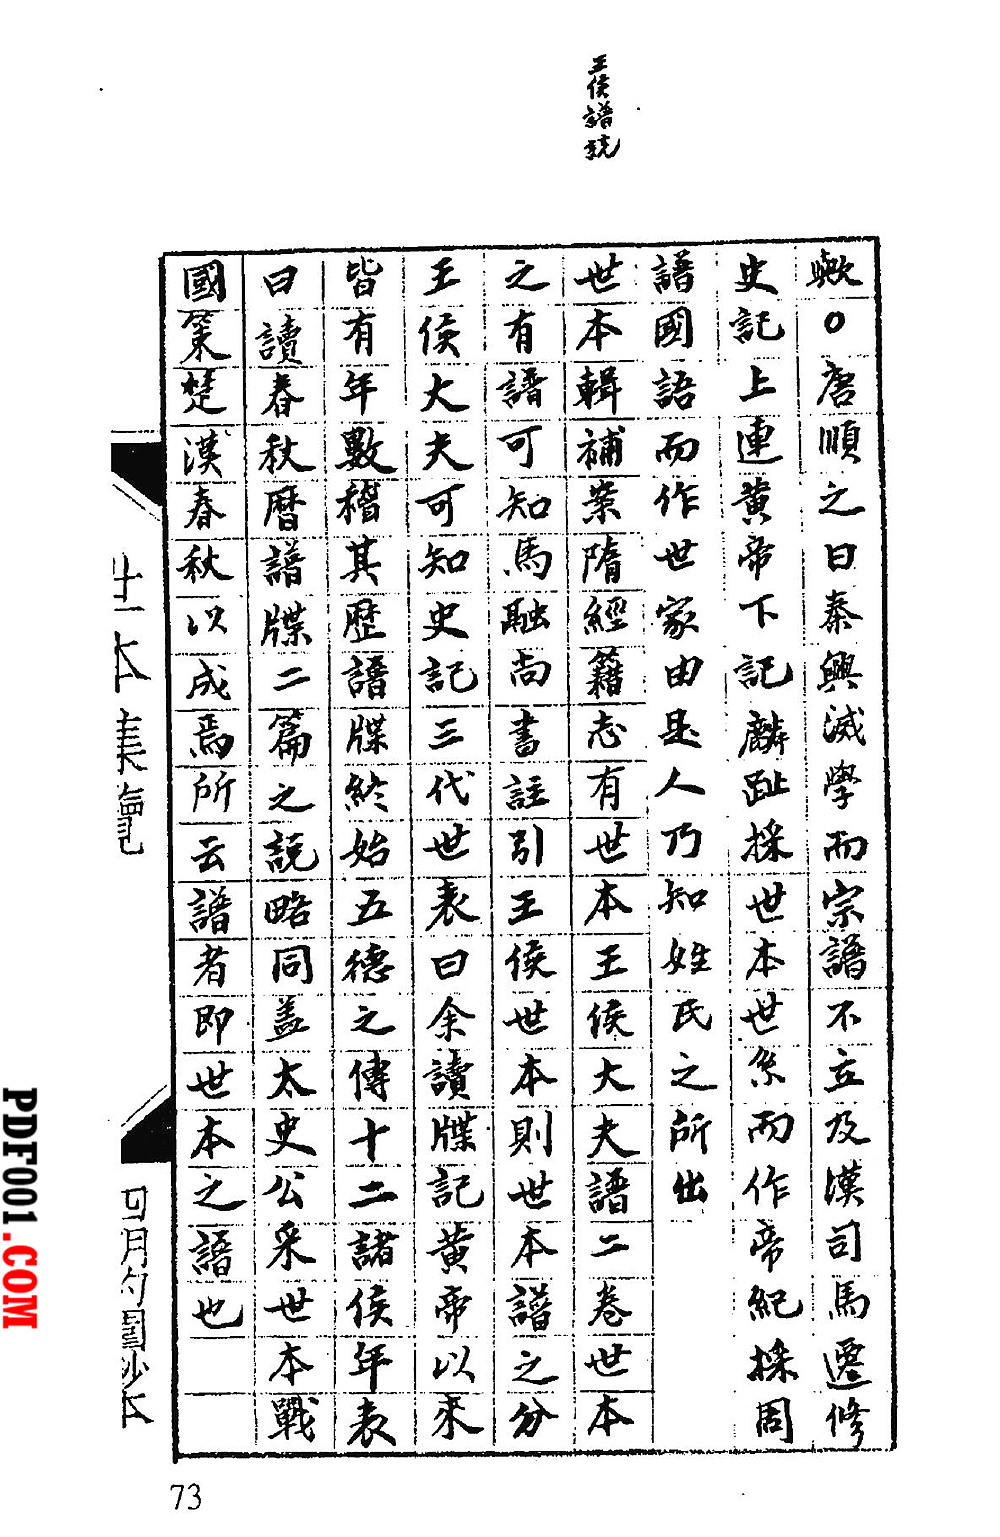 王侯譜統
歟○唐順之曰秦興滅學而宗譜不立及漢司馬遷修
史記上連黃帝下記麟趾採世本世系而作帝紀採周
譜國語而作世家由是人乃知姓氏之所出
世本輯補案隋經籍志有世本王侯大夫譜二卷世本
之有譜可知馬融尚書註引王侯世本則世本譜之分
王侯大夫可知史記三代世表曰余讀牒記黃帝以來
皆有年數稽其歷譜牒終始五德之傳十二諸侯年表
曰讀春秋曆譜牒二篇之説略同蓋太史公采世本戰
國策楚漢春秋以成焉所云譜者即世本之譜也
世本集覽
四明約園鈔本
73
PDF001.COM